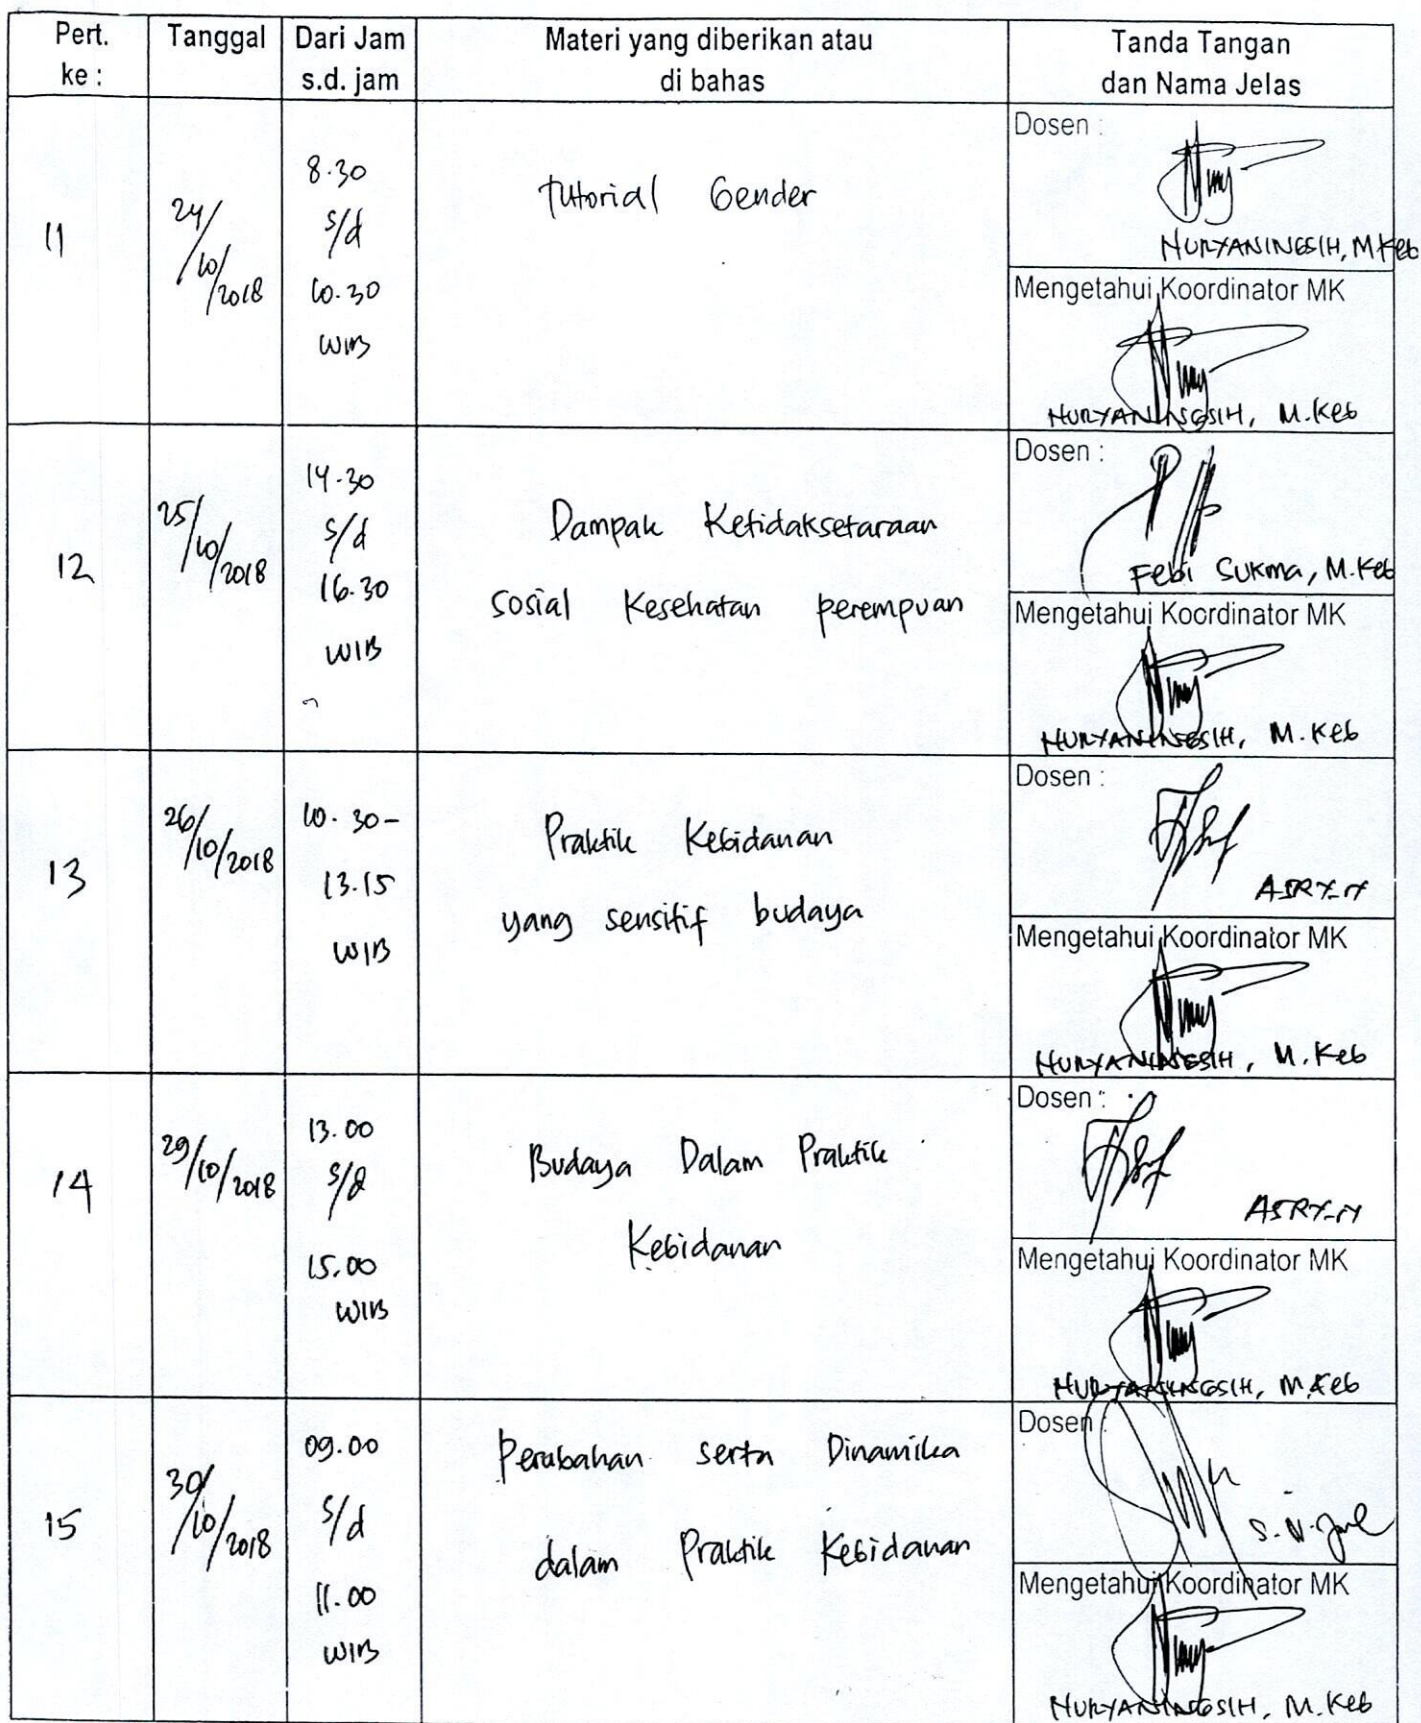 Pert. ke :
Tanggal
Dari Jam s.d. jam
Materi yang diberikan atau di bahas
Tanda Tangan dan Nama Jelas
11
24/10/2018
8.30
s/d
10.30
WIB
Tutorial Gender
Dosen :
NURYANINGSIH, M.Keb
Mengetahui Koordinator MK
NURYANINGSIH, M.Keb
12
25/10/2018
14.30
s/d
16.30
WIB
Dampak Ketidaksetaraan
sosial Kesehatan perempuan
Dosen :
Febi Sukma, M.Keb
Mengetahui Koordinator MK
NURYANINGSIH, M.Keb
13
26/10/2018
10.30-
13.15
WIB
Praktik Kebidanan
yang sensitif budaya
Dosen :
Mengetahui Koordinator MK
NURYANINGSIH, M.Keb
14
29/10/2018
13.00
s/d
15.00
WIB
Budaya Dalam Praktik
Kebidanan
Dosen :
Mengetahui Koordinator MK
NURYANINGSIH, M.Keb
15
30/10/2018
09.00
s/d
11.00
WIB
Perubahan serta Dinamika
dalam Praktik Kebidanan
Dosen :
Mengetahui Koordinator MK
NURYANINGSIH, M.Keb